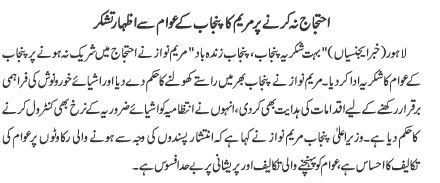 احتجاج نہ کرنے پر مریم کا پنجاب کے عوام سے اظہار تشکر
لاہور (خبر ایجنسیاں) "بہت شکریہ پنجاب، پنجاب زندہ باد" مریم نواز نے احتجاج میں شریک نہ ہونے پر پنجاب
کے عوام کا شکریہ ادا کر دیا۔ مریم نواز نے پنجاب بھر میں راستے کھولنے کا حکم دے دیا اور اشیائے خورونوش کی فراہمی
برقرار رکھنے کے لیے اقدامات کی ہدایت بھی کر دی، انہوں نے انتظامیہ کو اشیائے ضروریہ کے نرخ بھی کنٹرول کرنے
کا حکم دیا ہے۔ وزیراعلیٰ پنجاب مریم نواز نے کہا ہے کہ انتشار پسندوں کی وجہ سے ہونے والی رکاوٹوں پر عوام کی
تکالیف کا احساس ہے، عوام کو پہنچنے والی تکالیف اور پریشانی پر بے حد افسوس ہے۔